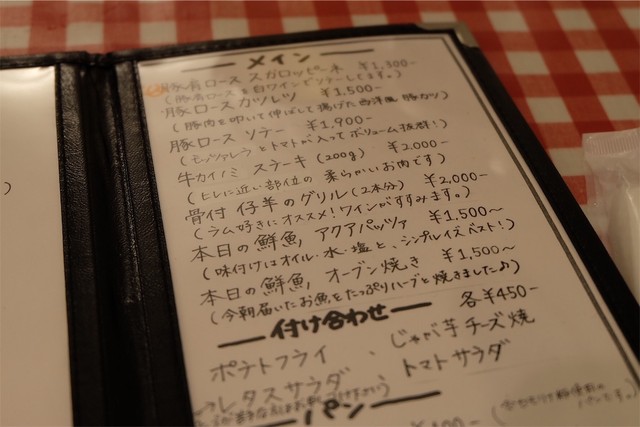 メイン
豚肩ロース スカロッピーネ ¥1,300-
(豚肩ロースを白ワインでソテーします。)
豚ロースカツレツ ¥1,500-
(豚肉を叩いて伸ばして揚げた西洋風豚カツ)
豚ロース ソテー ¥1,900-
(モッツァレラとトマトが入ってボリューム抜群!)
牛カイノミ ステーキ(200g) ¥2,000-
(ヒレに近い部位の柔らかいお肉です)
骨付 仔羊のグリル(2本分) ¥2,000-
(ラム好きにオススメ!ワインがすすみます。)
本日の鮮魚 アクアパッツァ ¥1,500〜
(味付けはオイル・水・塩と、シンプルイズベスト!)
本日の鮮魚 オーブン焼き ¥1,500〜
(今朝届いたお魚をたっぷりハーブと焼きました♪)
付け合わせ 各¥450-
ポテトフライ じゃが芋チーズ焼
レタスサラダ トマトサラダ
パン